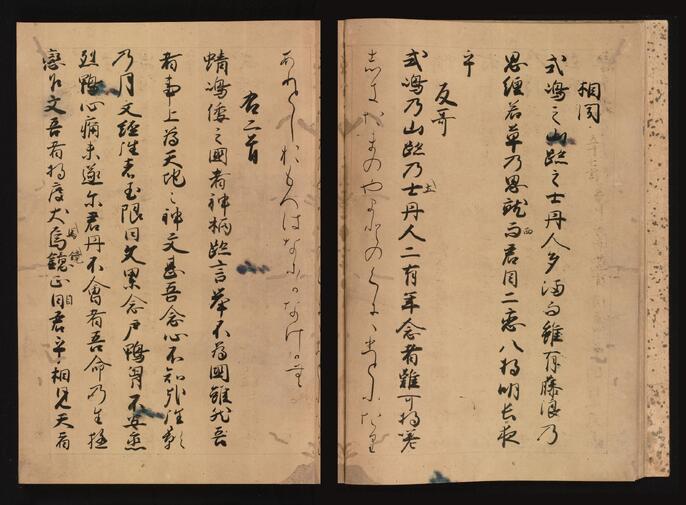 相聞
式嶋之山跡之士丹人多満而雖有藤浪乃
思纏若草乃思就而君目二恋八将明長夜
乎
反哥
式嶋乃山跡乃士丹人二有年念者難可将嗟
しきしまのやまとのくにゝひとふたり
ありとしおもはゝなにかなけかむ
右二首
蜻嶋倭之國者神柄跡言挙不為國雖然吾
者事上為天地之神文甚吾念心不知哉徃影
乃月文經徃者玉限日文累念戸鴨胸不安恋
烈鴨心痛末遂尓君丹不會者吾命乃生極
恋乍文吾者将度犬馬鏡正目君乎相見天者